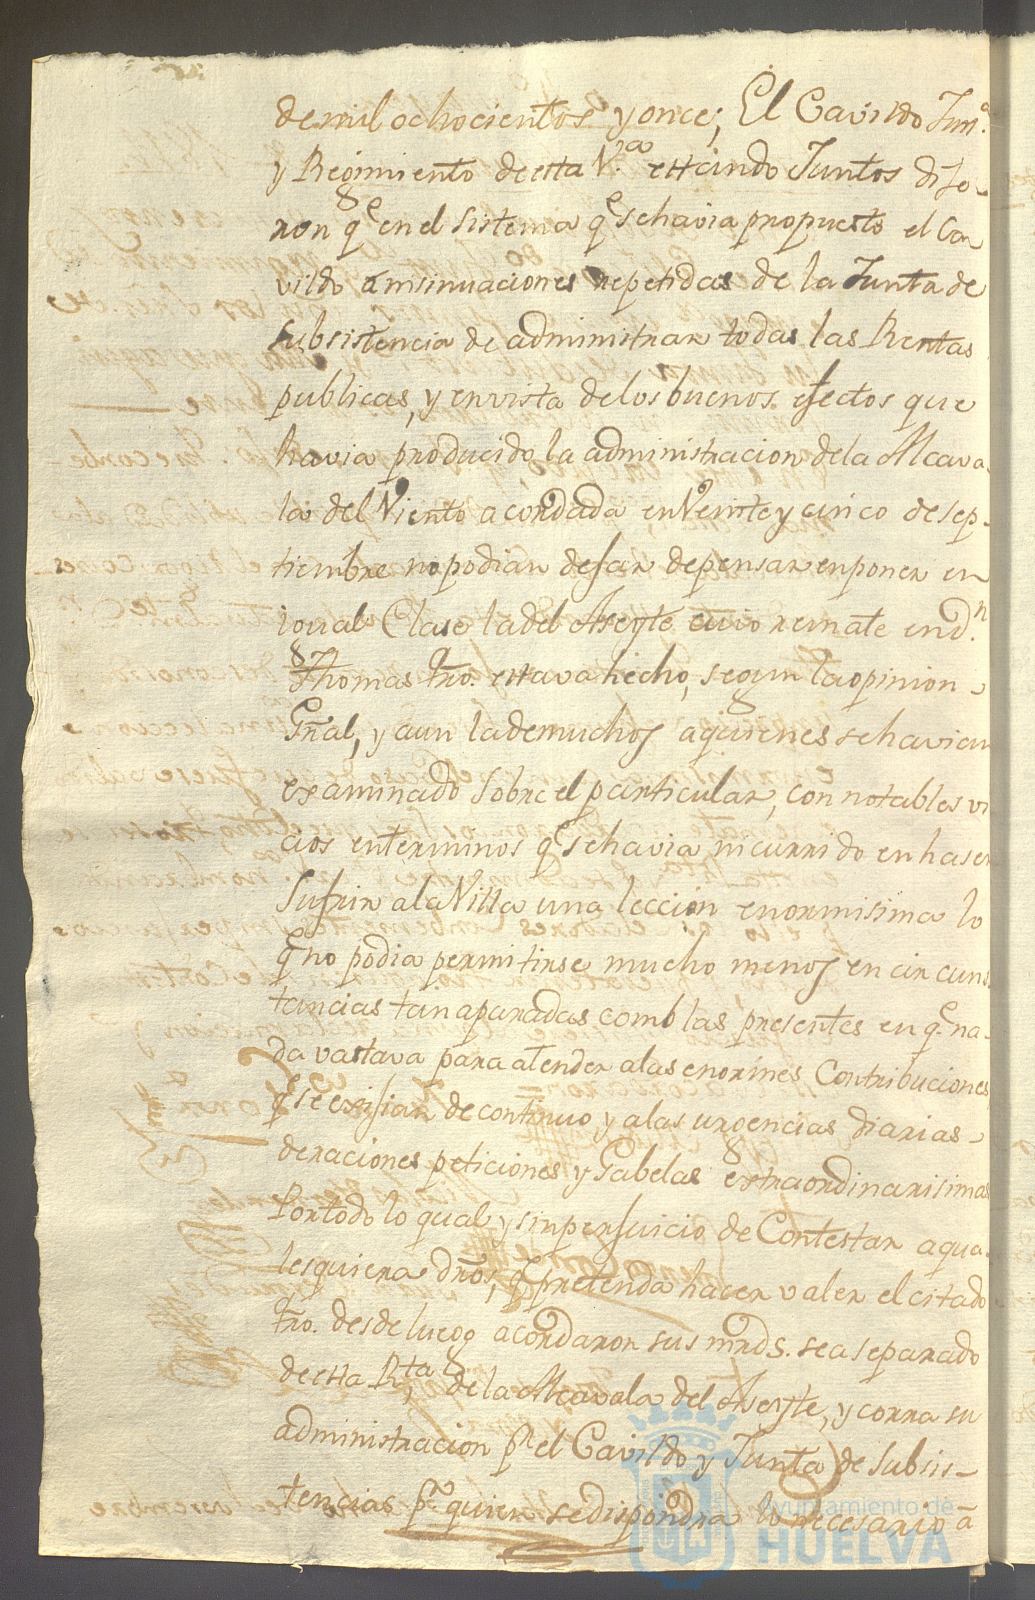 de mil ochocientos y once; El Cavildo Jus.ª
y Regimiento de esta V.ª estando Juntos dije-
ron q.e en el sistema q.e se havia propuesto el Ca
vildo a insinuaciones repetidas de la Junta de
subsistencia de administrar todas las Rentas
publicas, y en vista de los buenos efectos que
havia producido la administracion de la Alcava-
la del Viento acordada en Veinte y cinco de sep-
tiembre no podian dejar de pensar en poner en
igual Clase la del Aseyte cuio remate en d.n
Thomas estava hecho, segun la opinion
Gñal, y aun la de muchos a quienes se havian
examinado sobre el particular, con notables vi
cios en terminos q.e se havia incurrido en haser
sufrir a la Villa una leccion enormisima lo
q.e no podia permitirse mucho menos en circuns
tancias tan apuradas como las presentes en q.e na-
da vastava para atender a las enormes Contribuciones
q.e se exijian de continuo y a las urgencias diarias
de raciones peticiones y Gabelas extraordinarisimas
Por todo lo qual y sin perjuicio de Contestar a qua-
lesquiera dros, q.e pretenda hacer valer el citado
desde luego acordaron sus mrds. sea separado
de esta R.ta de la Alcavala del Aseyte, y corra su
administracion p.r el Cavildo y Junta de Subsis-
tencias p.r quien se dispondra lo necesario á
Ayuntamiento de
HUELVA